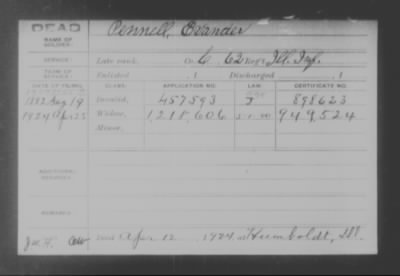 DEAD Pennell, Evander
NAME OF SOLDIER:
SERVICE: Late rank, Co. C, 62 Reg't Ill. Inf.
TERM OF SERVICE: Enlisted , 1 Discharged , 1
DATE OF FILING. CLASS. APPLICATION NO. LAW. CERTIFICATE NO.
1882 Aug 19 Invalid, 457593 J 898623
1924 Apr 25 Widow, 1,218,606 949,524
Minor,
ADDITIONAL SERVICES:
REMARKS:
Died Apr 12, 1924, at Humboldt, Ill.